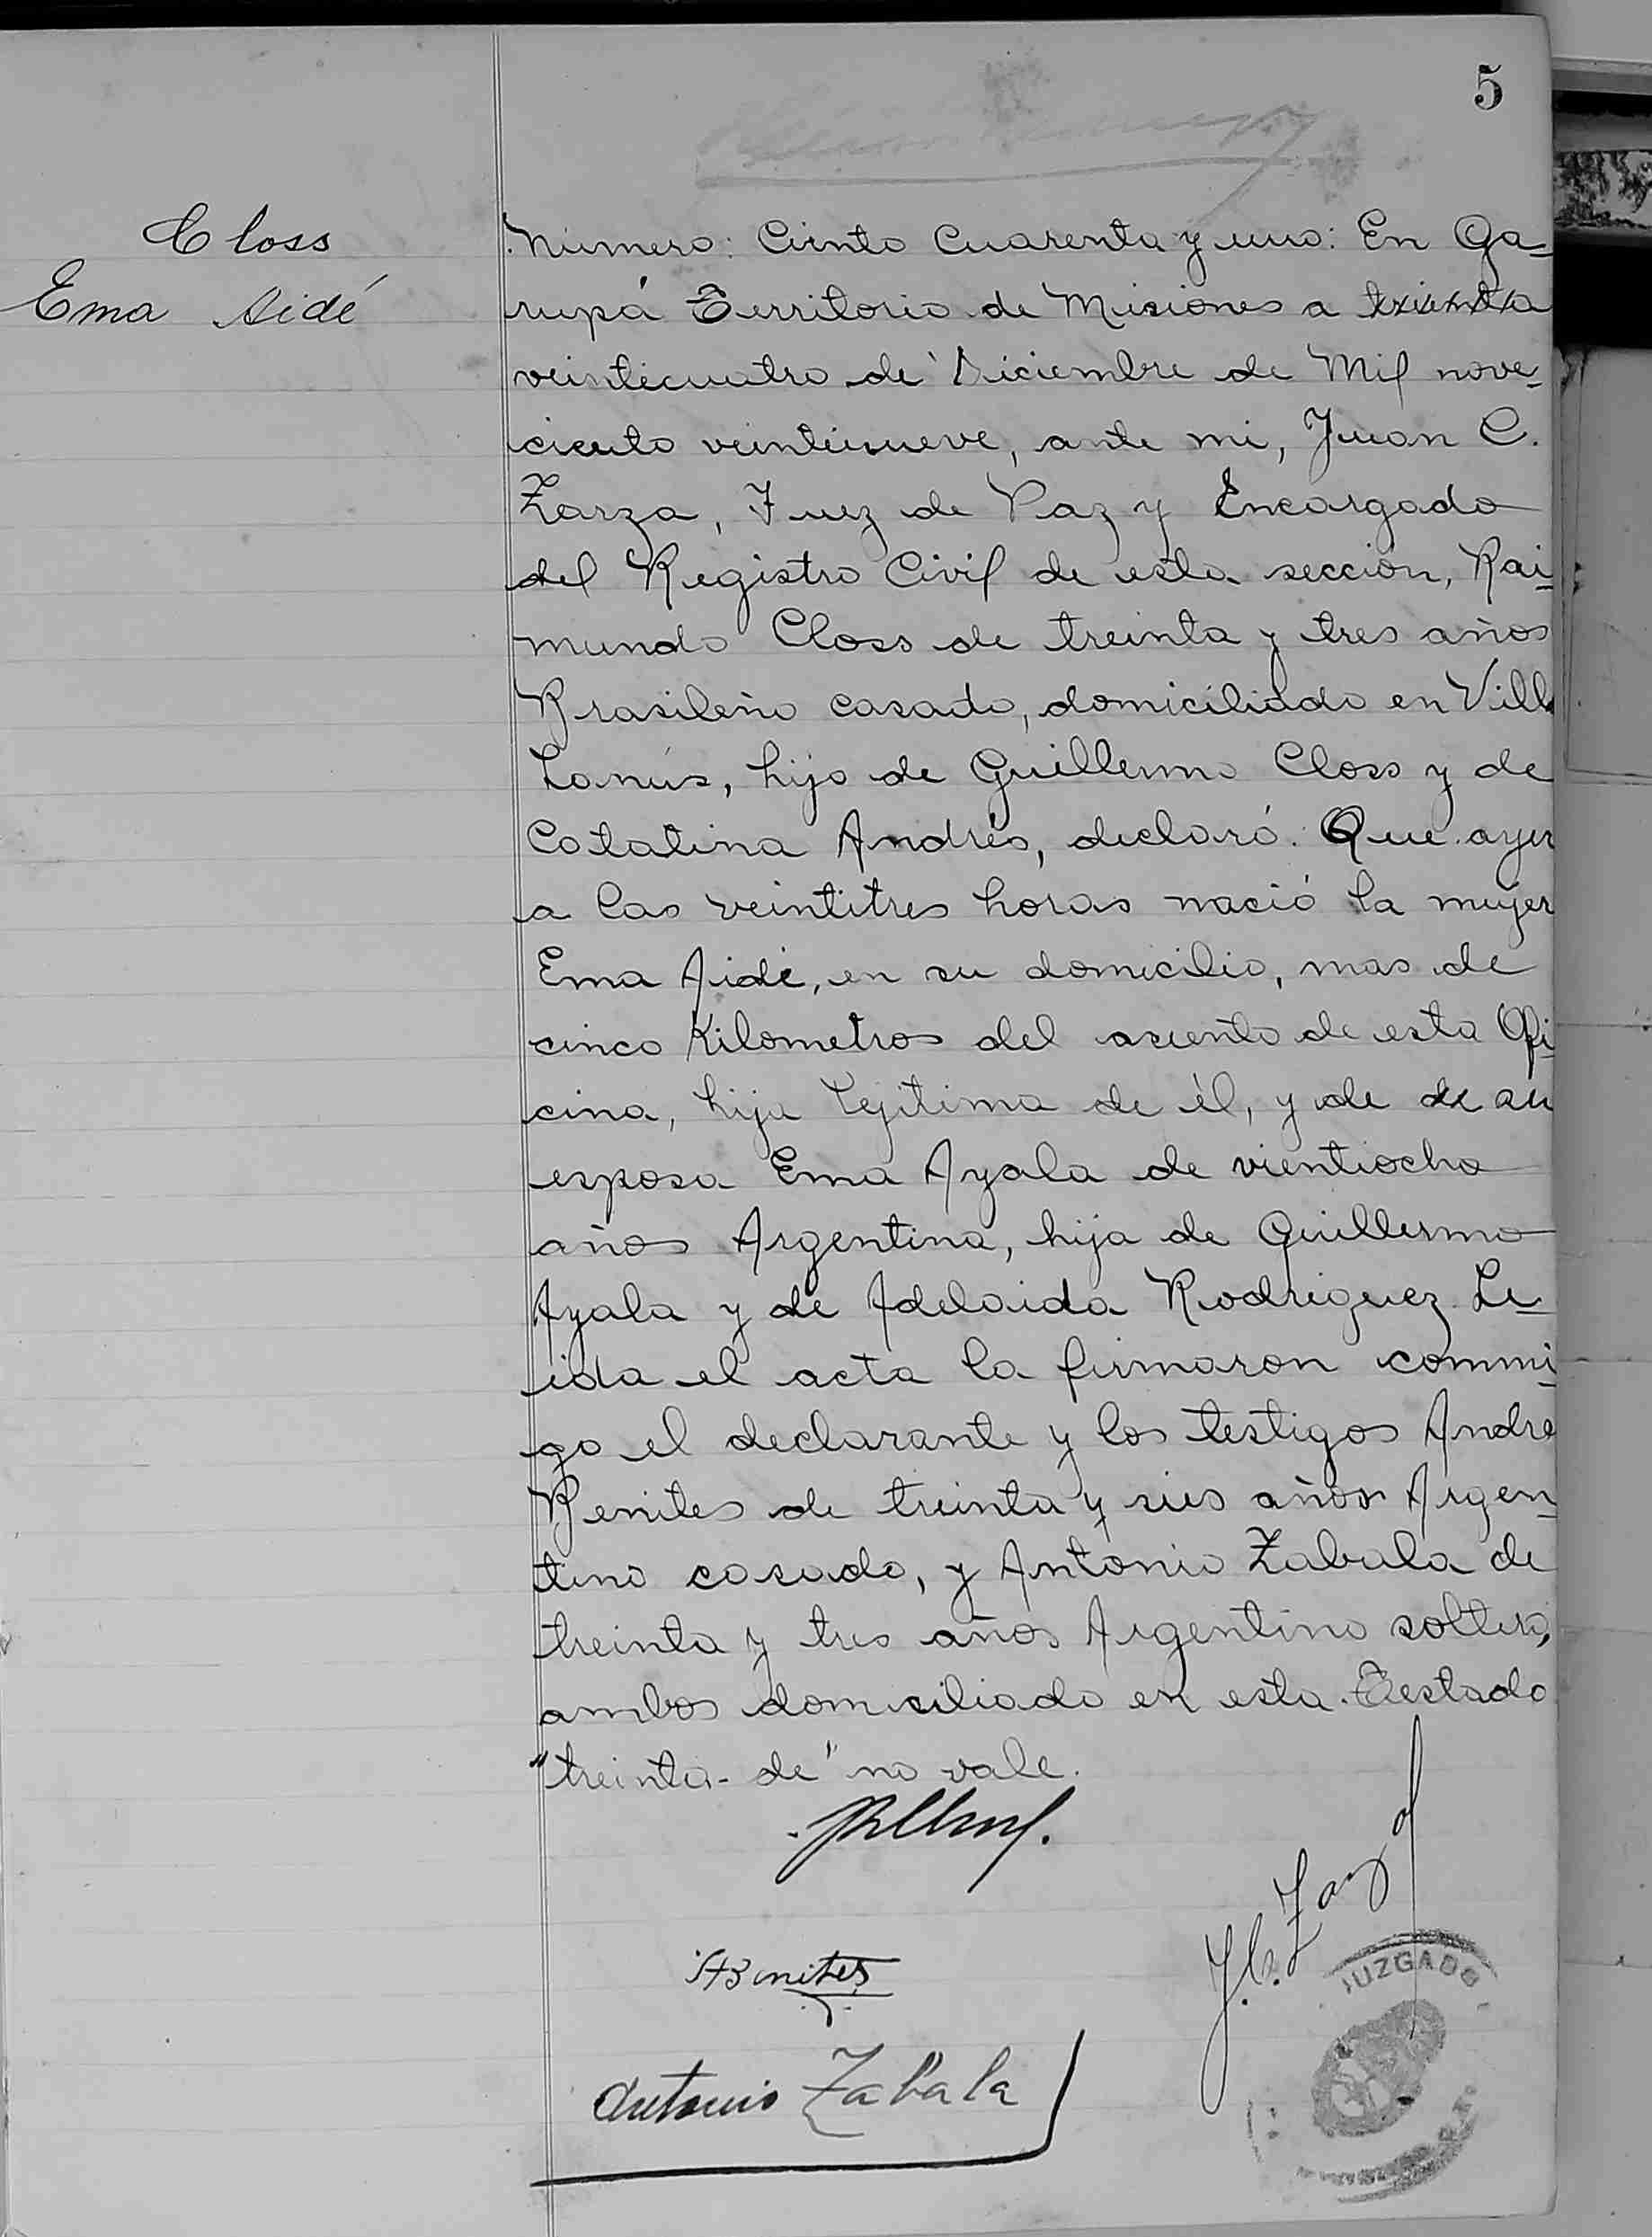 5
Closs
Ema Aidé
Número: Ciento Cuarenta y uno: En Ga-
rupá Territorio de Misiones a treinta
veinticuatro de Diciembre de Mil nove-
ciento veintinueve, ante mi, Juan C.
Zarza, Juez de Paz y Encargado
del Registro Civil de esta sección, Rai-
mundo Closs de treinta y tres años
Brasileño casado, domiciliado en Villa
Lanús, hijo de Guillermo Closs y de
Catalina Andrés, declaró: Que ayer
a las veintitres horas nació la mujer
Ema Aidé, en su domicilio, mas de
cinco Kilometros del asiento de esta Ofi-
cina, hija Lejitima de él, y de de su
esposa Ema Ayala de vientiocho
años Argentina, hija de Guillermo
Ayala y de Adelaida Rodriguez Le-
ida el acta la firmaron commi-
go el declarante y los testigos Andre
Benites de treinta y sies años Argen-
tino casado, y Antonio Zabala de
treinta y tres años Argentino soltero,
ambos domiciliado en esta. Testado
"treinta - de" no vale.
J.C. Zarza
ABenites
Antonio Zabala
JUZGADO